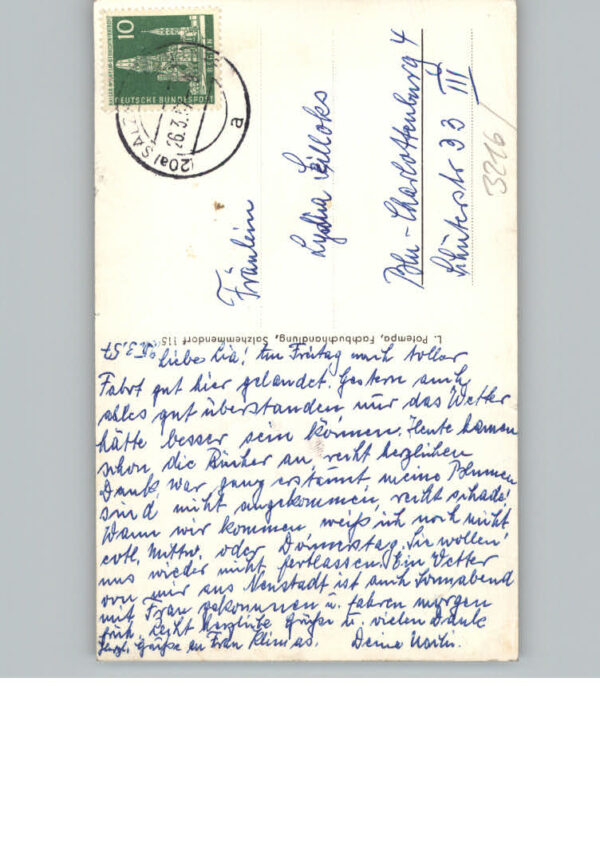 10
DEUTSCHE BUNDESPOST
BERLIN
(20a) SALZ
26.3.5
a
Fräulein
Lydia
Bln-Charlottenburg 4
Schlüterstr 33 III
3216/
L. Potempa, Fachbuchhandlung, Salzhemmendorf 115
3.57
Liebe Lia! Am Freitag nach toller
Fahrt gut hier gelandet. Gestern auch
alles gut überstanden nur das Wetter
hätte besser sein können. Heute kamen
schon die Bücher an, recht herzlichen
Dank, war ganz erstaunt, meine Blumen
sind nicht angekommen, recht schade!
Wann wir kommen weiß ich noch nicht
evtl. Mittw. oder Donnerstag. Sie wollen
uns wieder nicht fortlassen. Ein Vetter
von mir aus Neustadt ist auch Sonnabend
mit Frau gekommen u. fahren morgen
früh. Recht herzliche Grüße u. vielen Dank
herzl. Grüße an Frau Deine